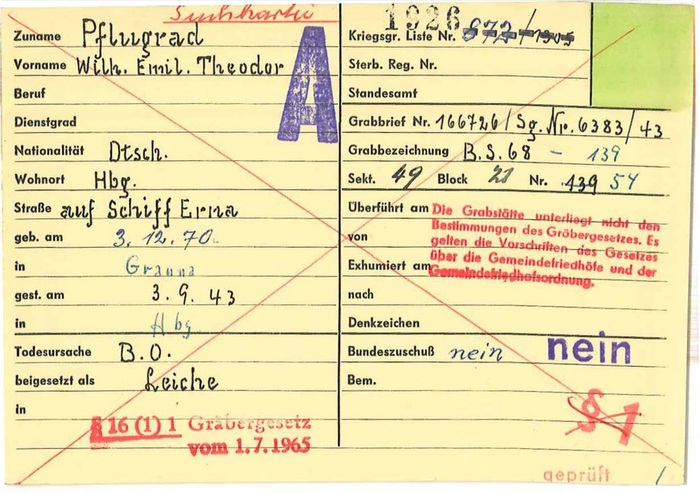 Suchkarte
Zuname Pflugrad
Vorname Wilh. Emil. Theodor
Beruf
Dienstgrad
Nationalität Dtsch.
Wohnort Hbg.
Straße auf Schiff Erna
geb. am 3.12.70.
in Granna
gest. am 3.9.43
in Hbg
Todesursache B.O.
beigesetzt als Leiche
in
§ 16 (1) 1 Gräbergesetz
vom 1.7.1965
A
1926
Kriegsgr. Liste Nr. 672/1505
Sterb. Reg. Nr.
Standesamt
Grabbrief Nr. 166726/Sg.Nr.6383/43
Grabbezeichnung B.S.68 - 139
Sekt. 49 Block 21 Nr. 139 54
Überführt am
von
Exhumiert am
nach
Die Grabstätte unterliegt nicht den
Bestimmungen des Gräbergesetzes. Es
gelten die Vorschriften des Gesetzes
über die Gemeindefriedhöfe und der
Gemeindefriedhofsordnung.
Denkzeichen
Bundeszuschuß nein nein
Bem.
§ 1
geprüft